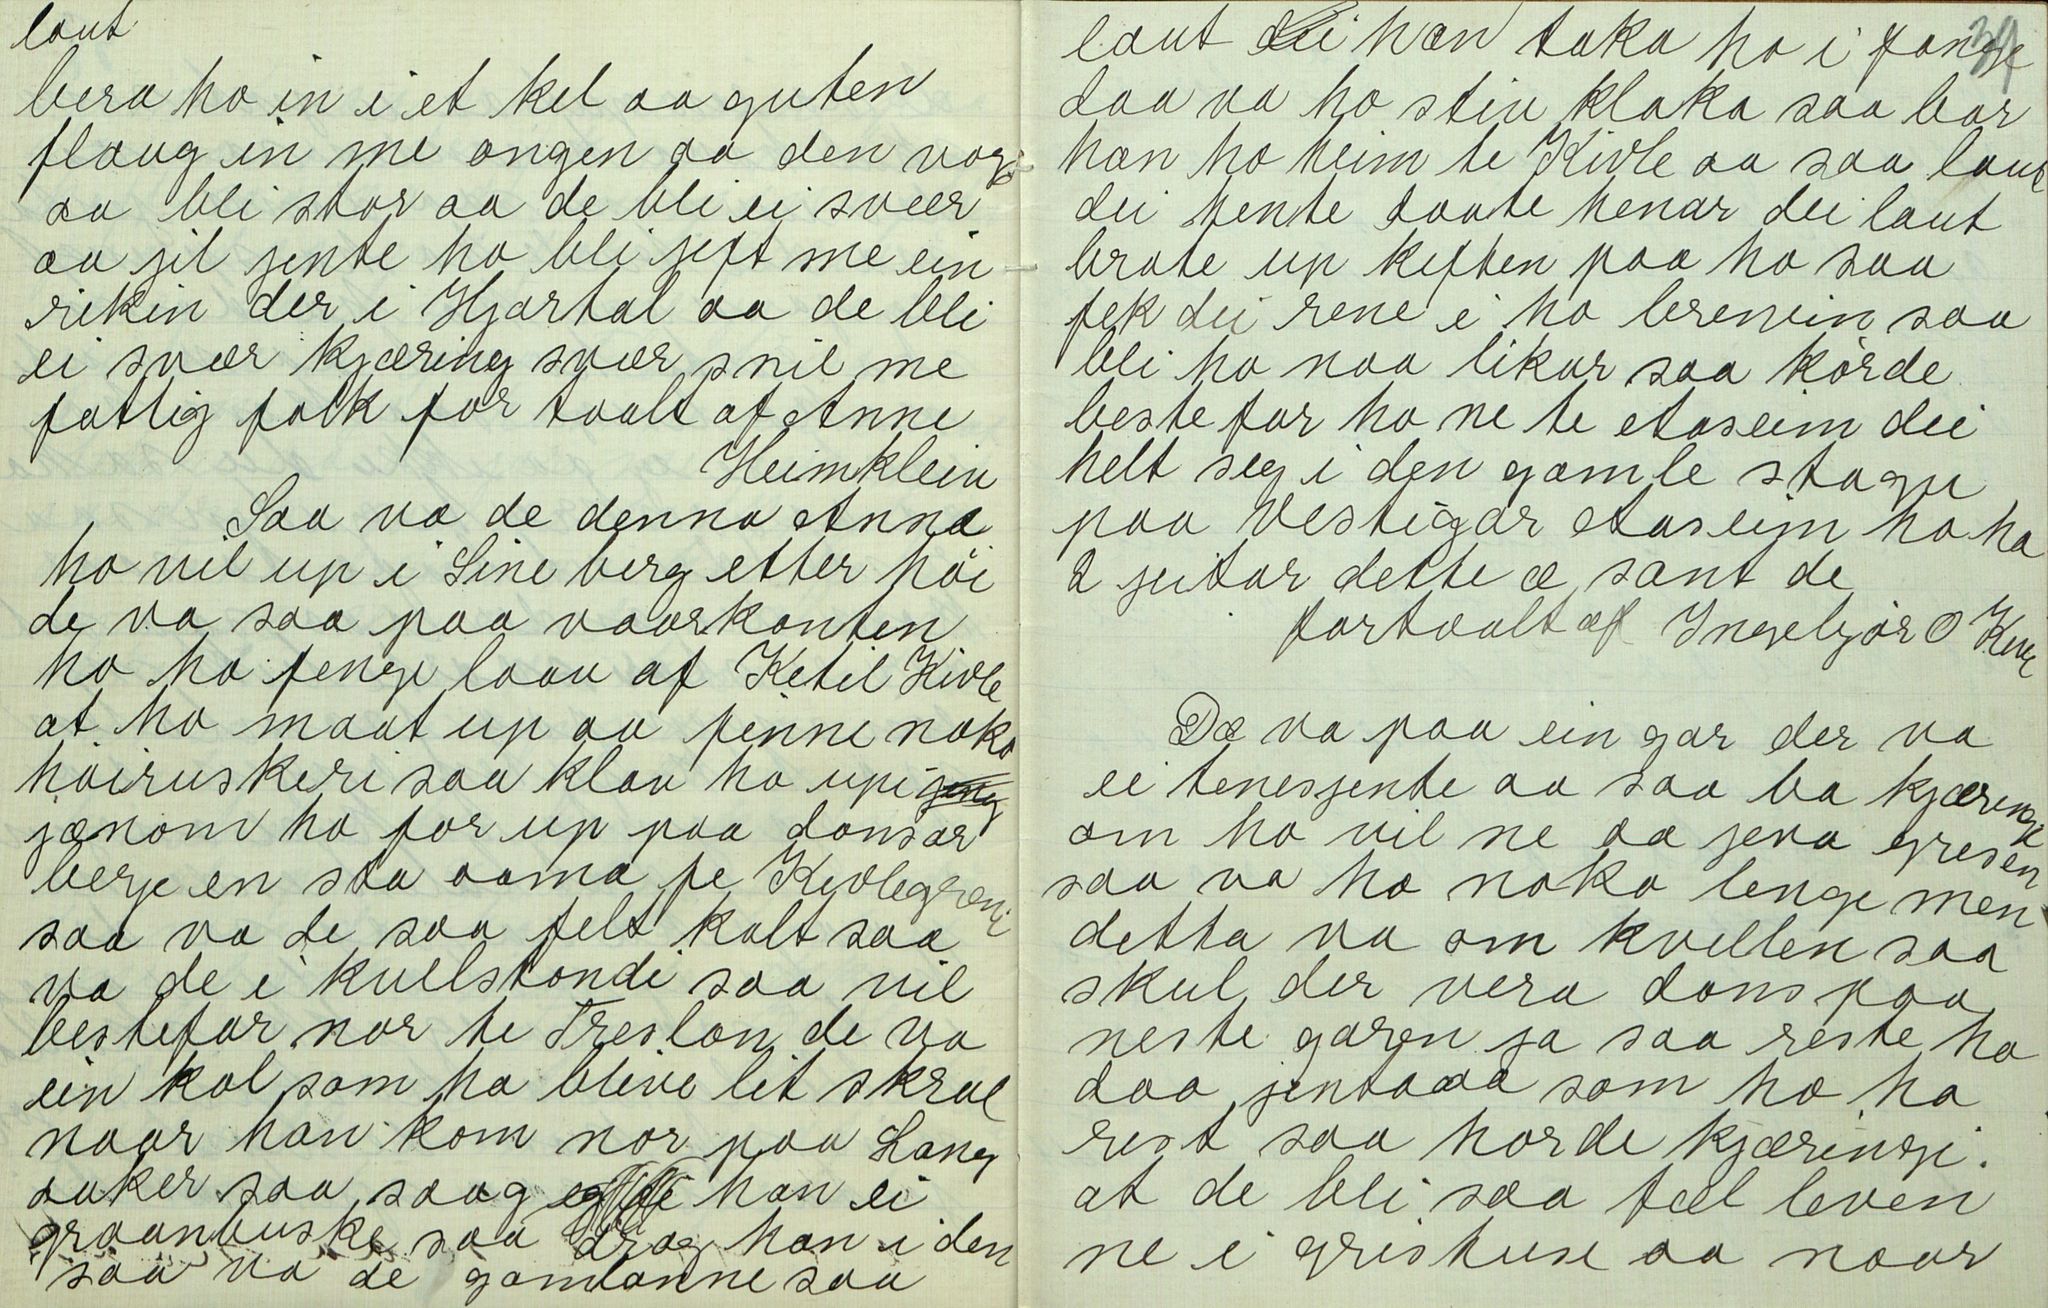 laut
bera ho in i et kel aa guten
flaug in me ongen aa den vogs
aa bli stor aa de bli ei sveer
aa jil jente ho bli jeft me ein
rikin der i Hjartal aa de bli
ei svær kjæring svær snil me
fattig folk for taalt af Anne
Heimklein
Saa va de denna Anna
ho vil up i Line berg etter höi
de va saa paa vaarkanten
ho ha fenge laav af Ketil Kivle
at ho maat up aa finne noko
höiruskeri saa klav ho upi
jænom ho for up paa dansar
berje en staa aama fe Kivlegreni
saa va de saa felt kalt saa
va de i kvellstondi saa vil
bestefar nor te Treslon de va
ein kal som ha blive lit skral
naar han kom nor paa Lang
aaker saa saag han ei
graanbuske saa drog han i den
saa va de gamlanne saa
34
laut dei han taka ho i fange
daa va ho stiv klaka saa bar
han ho heim te Kivle aa saa laut
dei hente taate henar dei laut
brote up keften paa ho saa
fek dei rene i ho brenvin saa
bli ho naa likar saa körde
bestefar ho ne te Aaseim dei
helt seg i den gamle stogu
paa Vestigar Aaseim ho ha
2 jeitar dette æ sant de
fortaalt af Ingebjör O Kivle
Dæ va paa ein gar der va
ei tenesjente aa saa ba kjæringi
om ho vil ne aa jeva grisen
saa va ho noko lenge men
detta va om kvellen saa
skul der vera dans paa
neste garen ja saa reste ho
daa jentaaa som ho ha
rest saa horde kjæringi.
at de bli saa fæl leven
ne i grishuse aa naar